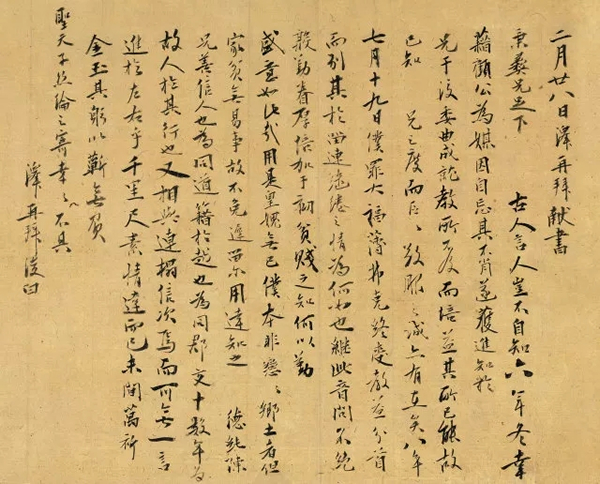 二月廿八日澤再拜獻書
秉彝兄足下 古人言人豈不自知六年冬幸
藉顧公為媒因自忘其不肖遂獲進知於
兄于後委曲成就教所不及而倍益其所已能故
已知 兄之度而區區敬服之誠亦有在矣八年
七月十九日僕罪大福薄弗克終受教益分首
而別其於留連繾綣之情為何如也繼此音問不絕
殷勤眷厚倍加于初貧賤之知何以勤
盛意如此哉用是皇媿無已僕本非戀戀鄉土者但
家貧無易事故不免遲留用達知之 德純陳
兄善信人也為同道籍於越也為同郡交十數年為
故人於其行也又相與連榻信次焉而可無一言
進於左右乎千里尺素情達而已未間萬祈
金玉其躬以蘄無負
聖天子絲綸之寄幸幸不具
澤再拜復白